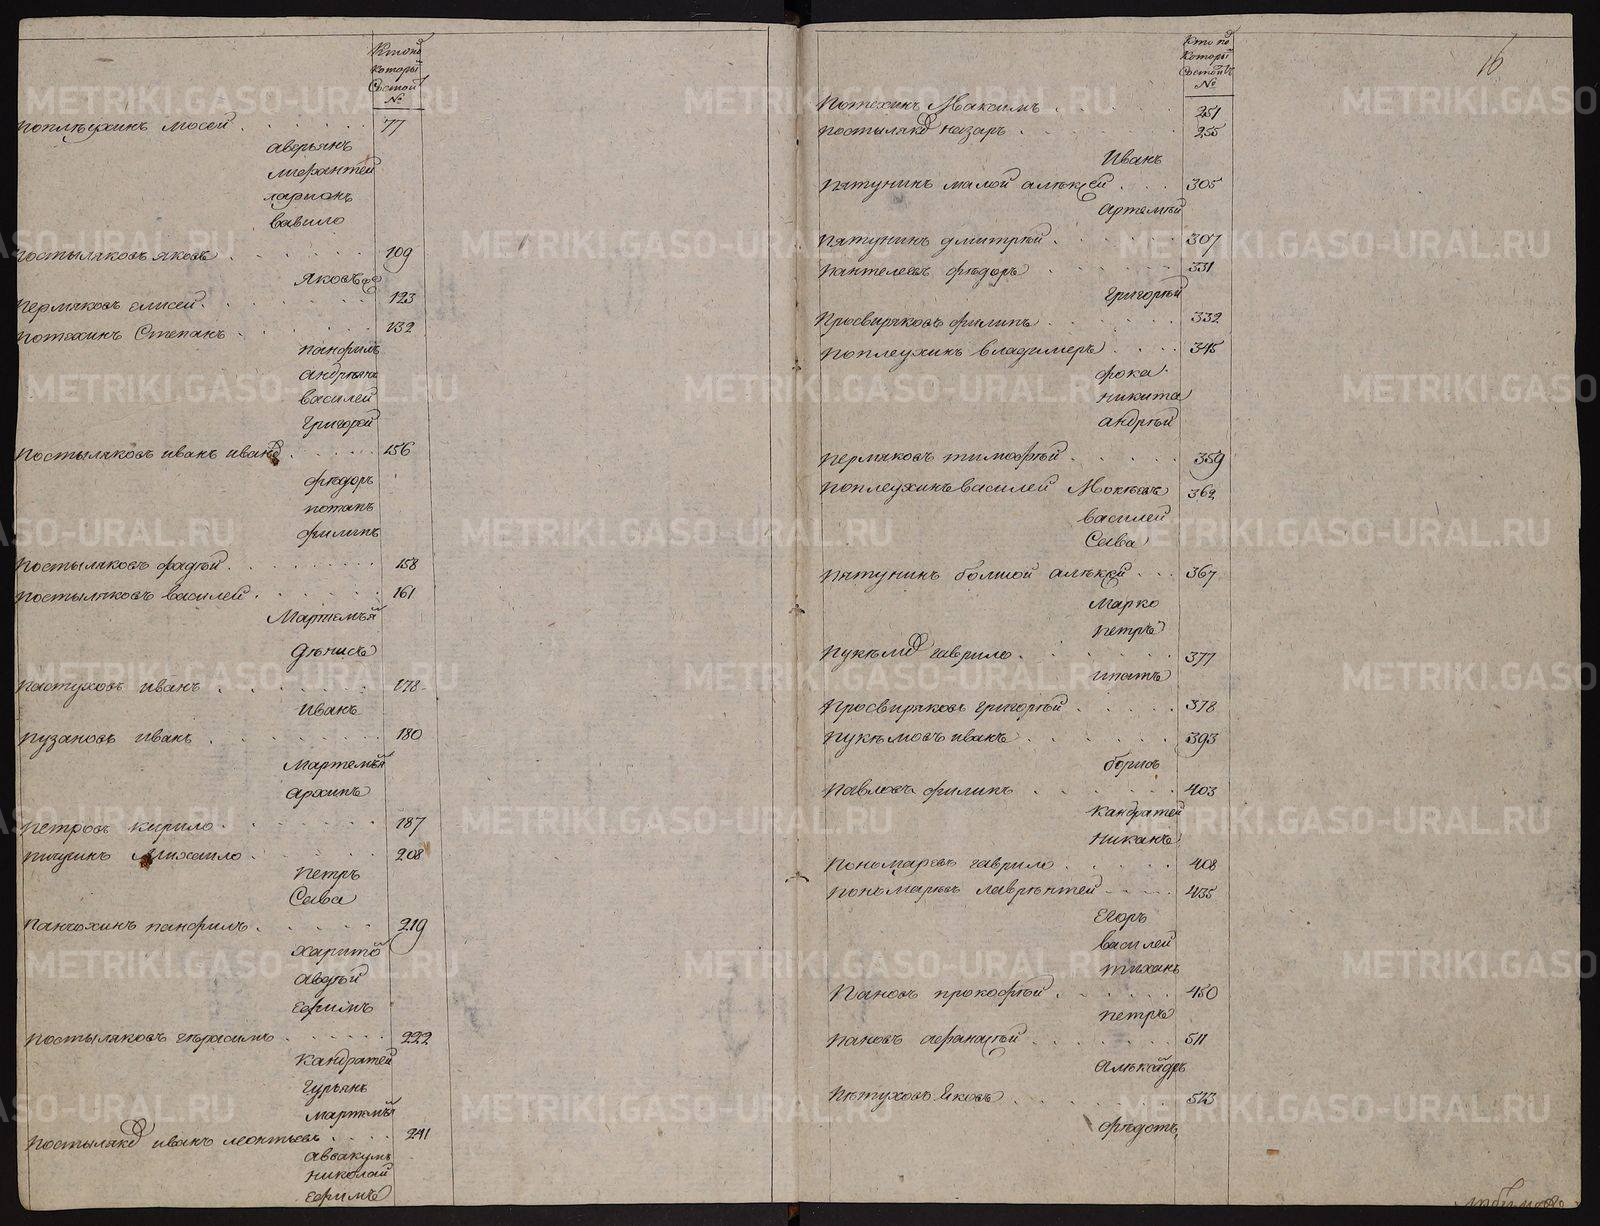 Кто под
Которы
Состоит
№
Поплеухинъ мосей 77
аверьянъ
мифантей
ларионъ
вавило
Постыляковъ яковъ 109
Яковъ
Пермяковъ елисей 123
Потехинъ Степанъ 132
панфилъ
андреянъ
василей
Григорей
Постыляковъ иванъ ивановъ 156
фѣдоръ
потапъ
филипъ
Постыляковъ фадѣй 158
Постыляковъ василей 161
Мартемьян
Дѣнисъ
Пастуховъ иванъ 178
Иванъ
Пузановъ иванъ 180
Мартемьян
архипъ
Петровъ кирило 187
Пичугинъ Михаило 208
Петръ
Сава
Паньхинъ панфилъ 219
харитон
авдѣй
ефимъ
Постыляковъ гѣрасимъ 222
Кандратей
Гурьянъ
мартемьян
Постыляков иванъ леонтьевъ 241
аввакумъ
николай
ефимъ
Кто под
Которы
Состоитъ
№
16
Потехинъ Максимъ 251
Постыляков назаръ 255
Иванъ
Пятунинъ малой алѣксей 305
артемѣй
Пятунинъ дмитрѣй 307
Пантелеевъ фѣдоръ 331
Григорѣй
Просвиряковъ филипъ 332
Поплеухинъ владимеръ 345
фока
никита
андрѣй
Пермяковъ тимофѣй 359
Поплеухинъ василей Мокѣевъ 362
василей
Сава
Пятунинъ болшой алѣксей 367
Марко
петръ
Пукѣмов гаврило 377
ипатъ
Просвиряковъ григорѣй 378
Пукѣмовъ иванъ 393
борисъ
Павловъ филипъ 403
Кандратей
никанъ
Пономаревъ гаврило 408
Пономаревъ лаврѣнтей 435
Егоръ
василей
тиханъ
Пановъ прокофѣй 450
петръ
пановъ афанасѣй 511
алѣксандръ
Пѣтуховъ Яковъ 523
фѣдотъ
METRIKI.GASO-URAL.RU